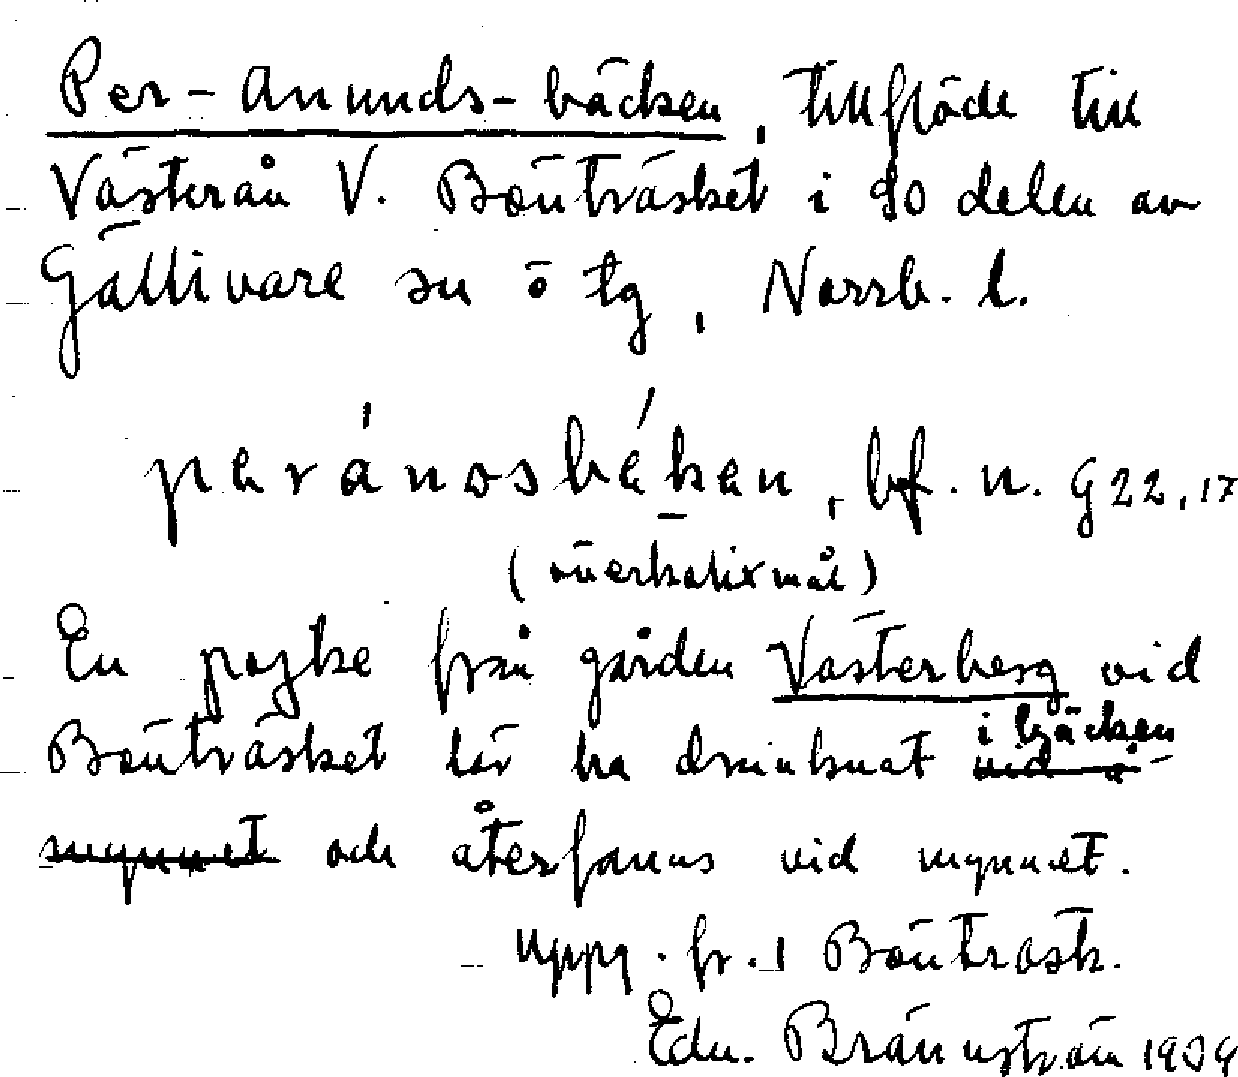 Per-Anunds-bäcken, tillflöde till
Västerån V. Bönträsket i SO delen av
Gällivare sn o tg, Norrb. l.
peránosbékan, bf. n. G 22, 17
(överkalixmål)
En pojke från gården Västerberg vid
i bäcken
Bönträsket lär ha drunknat vid å-
mynnet och återfanns vid mynnet.
Uppg. fr. Bönträsk.
Edv. Brännström 1939